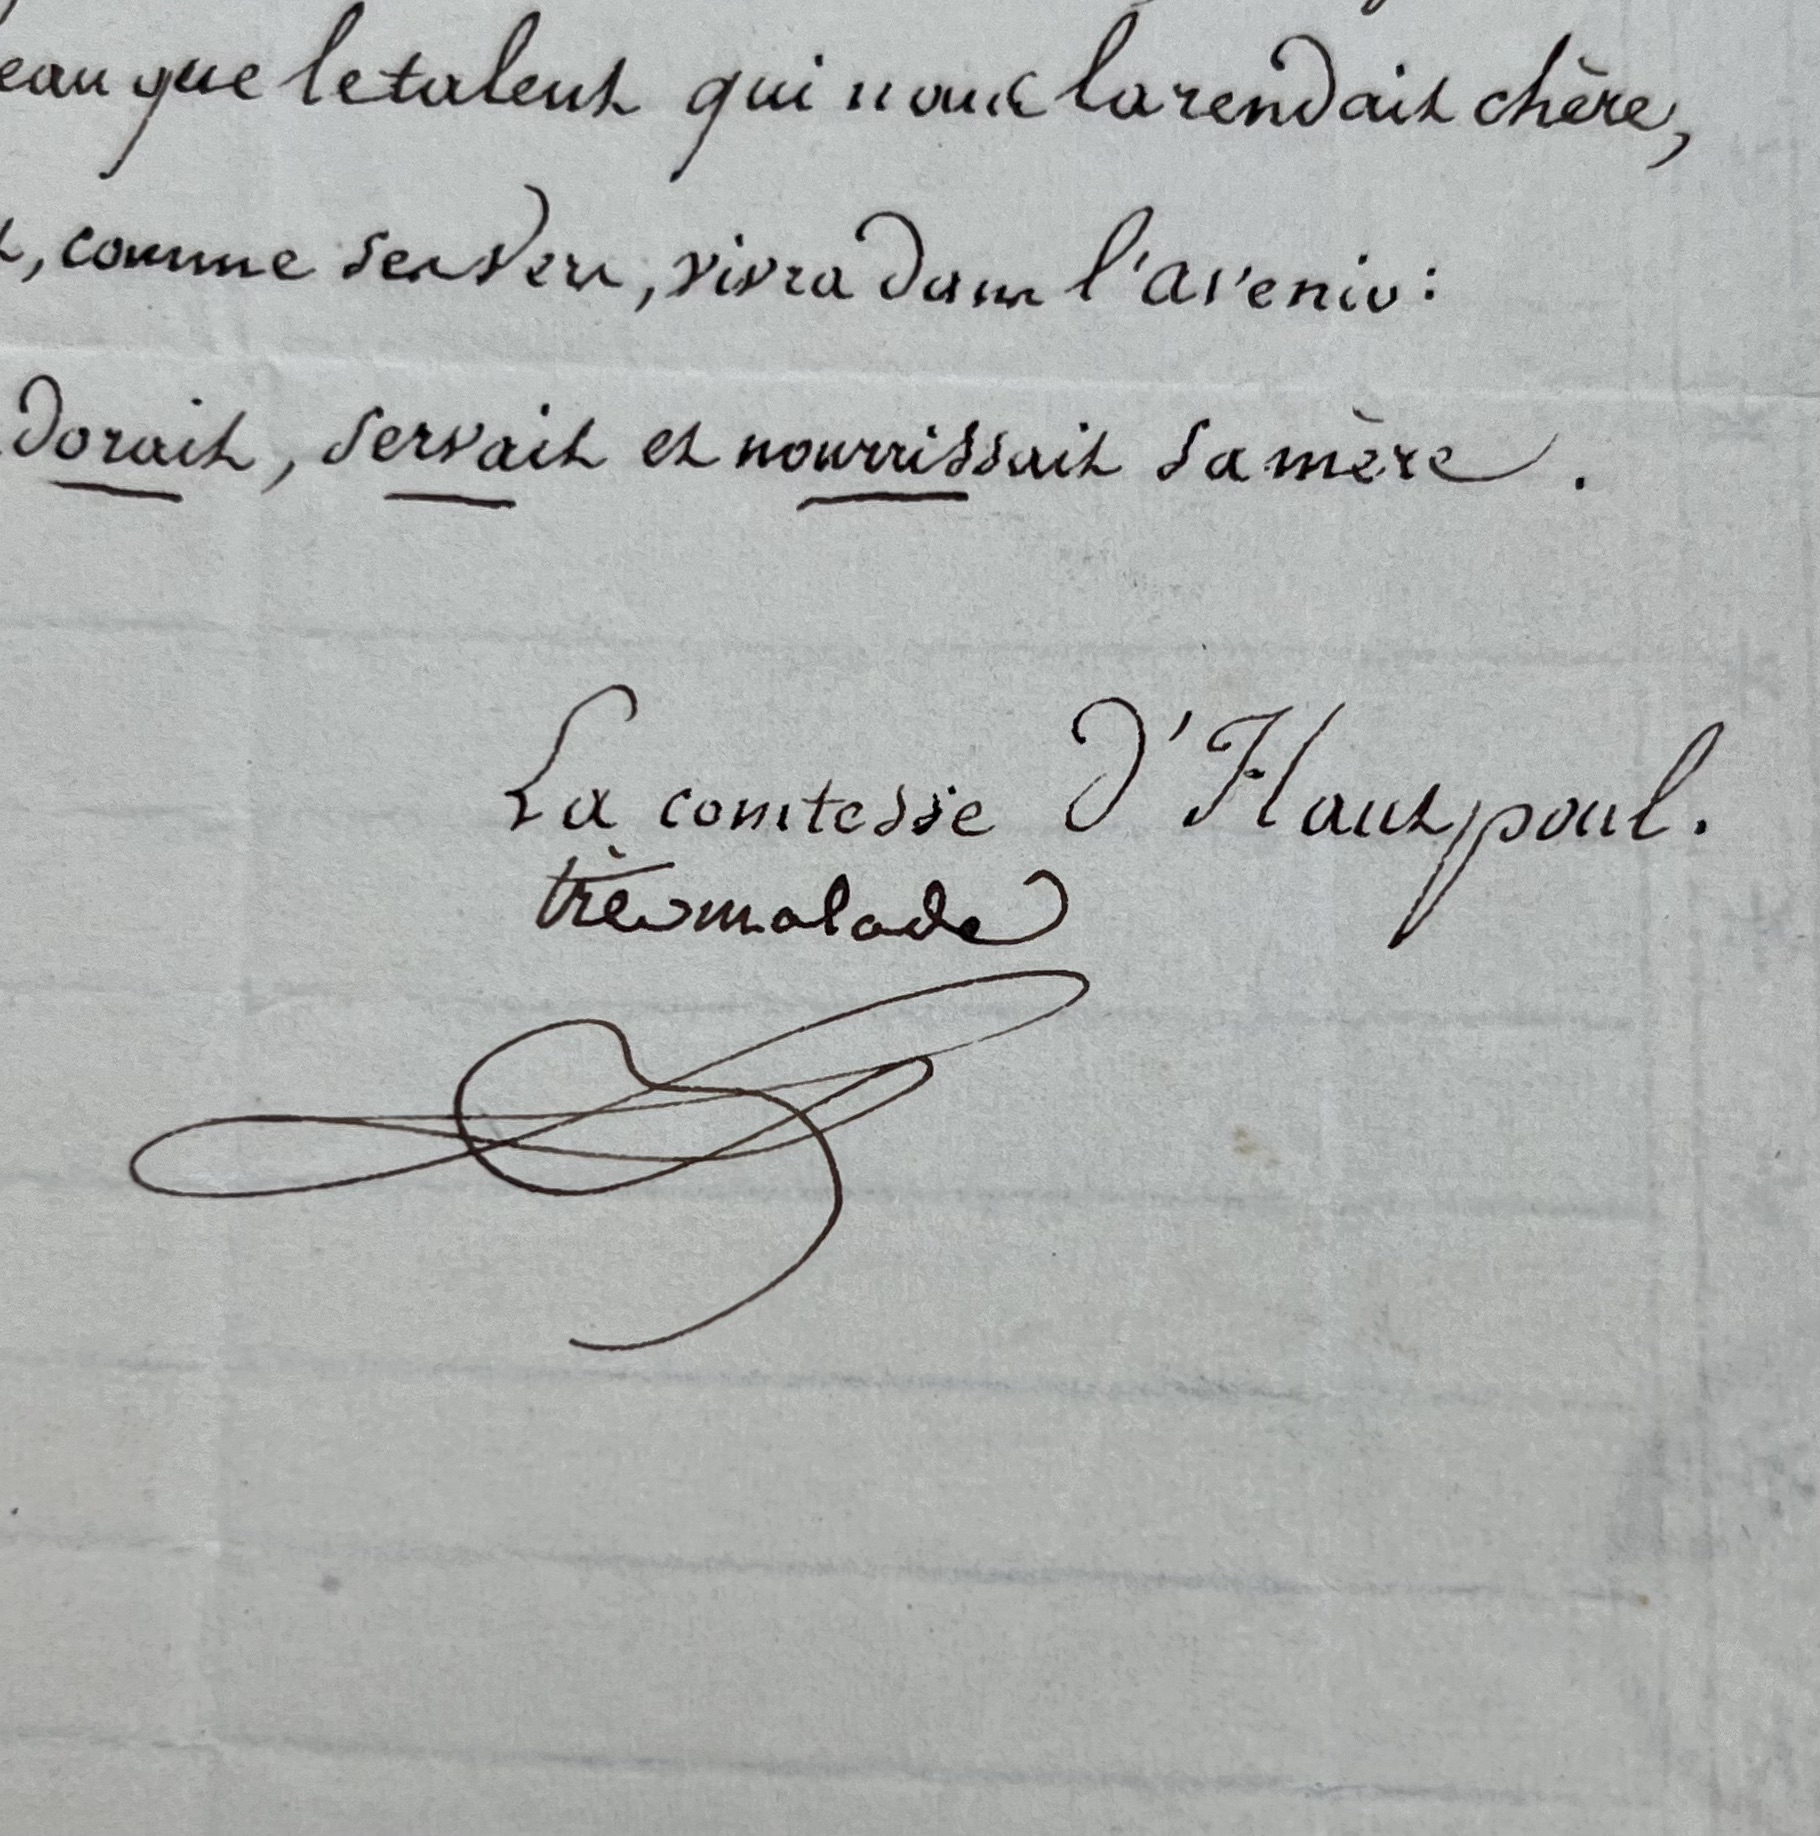 eau que le talent qui nous la rendait chère,
t, comme ses vers, vivra dans l'avenir :
dorait, servait et nourrissait sa mère.
La comtesse d'Hautpoul.
très malade